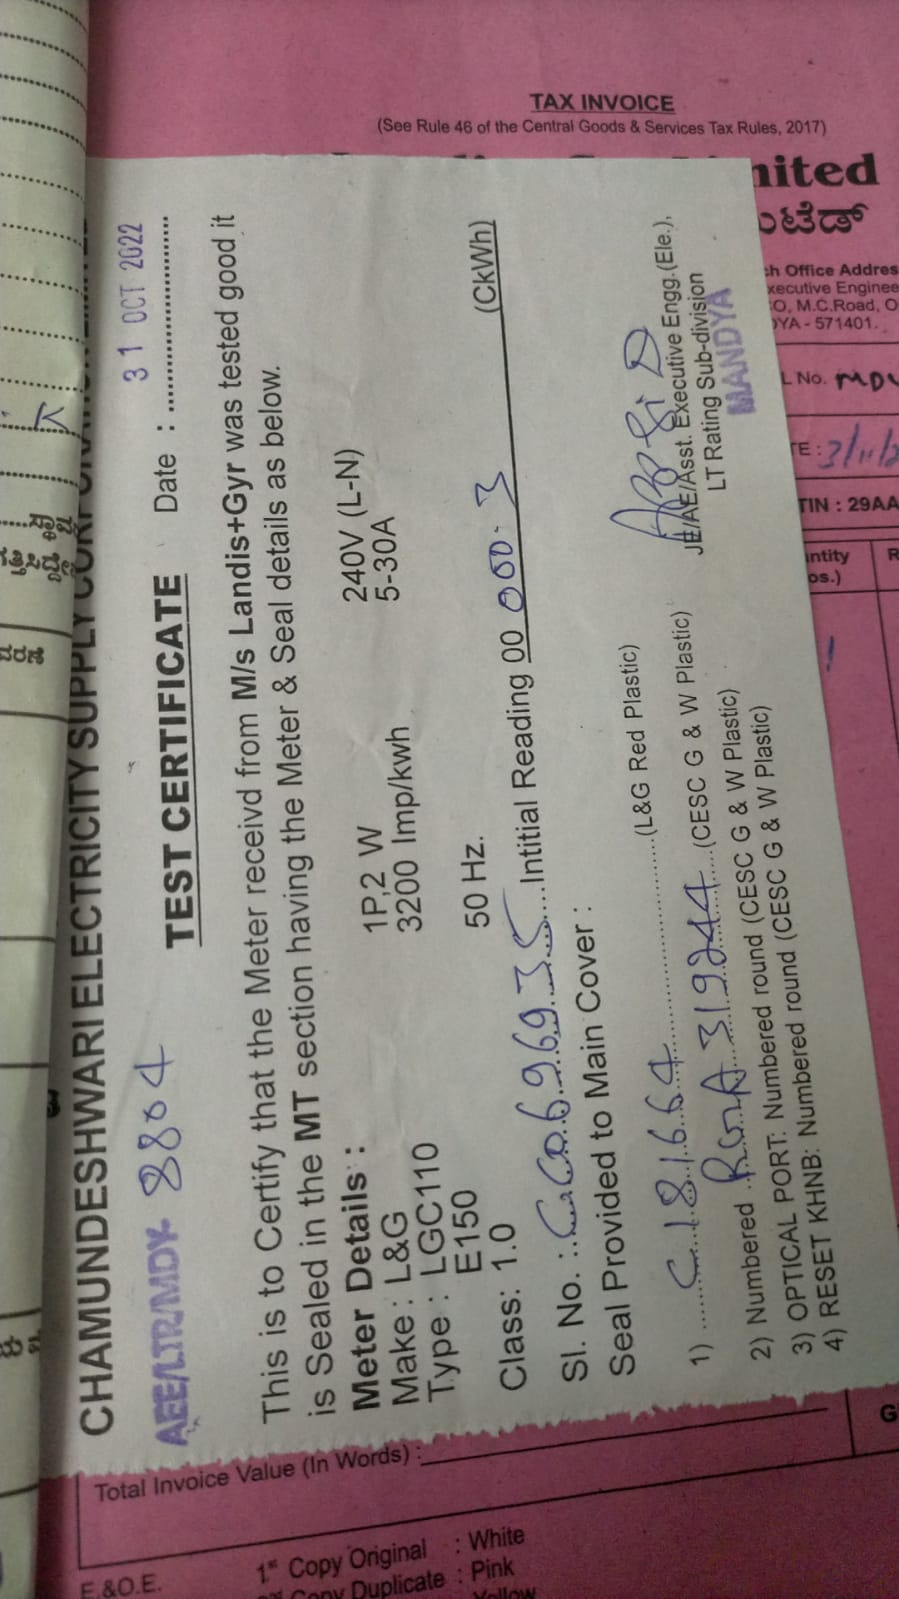 TAX INVOICE
(See Rule 46 of the Central Goods & Services Tax Rules, 2017)
CHAMUNDESHWARI ELECTRICITY SUPPLY
AEE/LTR/MDY 8804
31 OCT 2022
TEST CERTIFICATE Date :
This is to Certify that the Meter receivd from M/s Landis+Gyr was tested good it
is Sealed in the MT section having the Meter & Seal details as below.
Meter Details :
Make : L&G 1P,2 W 240V (L-N)
Type : LGC110 3200 Imp/kwh 5-30A
E150
Class: 1.0 50 Hz.
Sl. No. : Intitial Reading 00 000.3 (CkWh)
Seal Provided to Main Cover :
1) C 181664 (L&G Red Plastic)
2) Numbered 319244 (CESC G & W Plastic)
3) OPTICAL PORT: Numbered round (CESC G & W Plastic)
4) RESET KHNB: Numbered round (CESC G & W Plastic)
JE/AE/Asst. Executive Engg.(Ele.),
LT Rating Sub-division
MANDYA
Office Addres
O, M.C.Road, O
YA - 571401.
No.
TIN : 29AA
Total Invoice Value (In Words) :
E.&O.E.
1st Copy Original : White
Copy Duplicate : Pink
Yellow